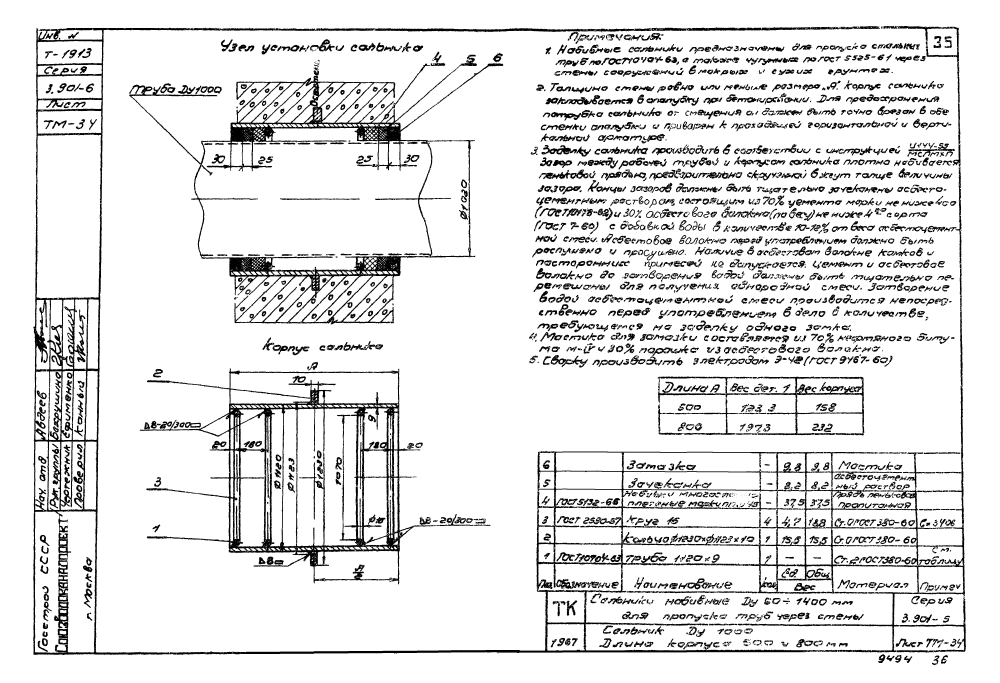 Инв. №
Т-1913
Серия
3.901-6
Лист
ТМ-34
Узел установки сальника
Труба Ду1000
4
5
6
30
25
25
30
ф1020
Корпус сальника
А
10
2
3
1
20
180
180
20
ф1120
ф1123
ф1230
1070
9
ф15
35
Примечания:
1. Набивные сальники предназначены для пропуска стальных
труб по ГОСТ10704-63, а также чугунных по ГОСТ 5525-61 через
стены сооружений в мокрых и сухих грунтах.
2. Толщина стены равна или меньше размера "А". Корпус сальника
закладывается в опалубку при бетонировании. Для предохранения
патрубка сальника от смещения он должен быть точно врезан в обе
стенки опалубки и приварен к проходящей горизонтальной и верти-
кальной арматуре.
3. Заделку сальника производить в соответствии с инструкцией
Зазор между рабочей трубой и корпусом сальника плотно набивается
пеньковой прядью, предварительно скрученной в жгут толще величины
зазора. Концы зазоров должны быть тщательно зачеканены асбесто-
цементным раствором, состоящим из 70% цемента марки не ниже 400
(ГОСТ10178-62) и 30% асбестового волокна (по весу) не ниже 4го сорта
(ГОСТ 7-60) с добавкой воды в количестве 10-12% от веса асбестоцемент-
ной смеси. Асбестовое волокно перед употреблением должно быть
распушено и просушено. Наличие в асбестовом волокне комков и
посторонних примесей не допускается. Цемент и асбестовое
волокно до затворения водой должны быть тщательно пе-
ремешаны для получения однородной смеси. Затворение
водой асбестоцементной смеси производится непосред-
ственно перед употреблением в дело в количестве,
требующемся на заделку одного замка.
4. Мастика для замазки составляется из 70% нефтяного биту-
ма и 30% порошка из асбестового волокна.
5. Сварку производить электродом Э-42 (ГОСТ 9467-60)
Длина А Вес дет. 1 Вес корпуса
500 123,3 158
800 197,3 232
6 Замазка - 9,8 9,8 Мастика
5 Зачеканка - 8,2 8,2 Асбестоцементный раствор
4 ГОСТ5152-66 - 37,5 37,5 Прядь пеньковая пропитанная
3 ГОСТ 2590-57 Круг 15 4 4,7 18,8 Ст.0ГОСТ380-60
2 Кольцо ф1230×ф1123×10 1 15,5 15,5 Ст.0ГОСТ380-60
1 ГОСТ10704-63 Труба 1120×9 1 - - Ст.2ГОСТ380-60 См. таблицу
Обозначение Наименование Кол. Ед. Общ. Вес Материал Примеч
ТК
1967
Сальники набивные Ду 50÷1400 мм
для пропуска труб через стены
Сальник Ду 1000
Длина корпуса 500 и 800 мм
Серия
3.901-5
Лист ТМ-34
9494 36
Госстрой СССР
СОЮЗВОДОКАНАЛПРОЕКТ
г. Москва
Нач. отд. Авдеев
Рук. группы
Чертежник Ефименко
Проверил